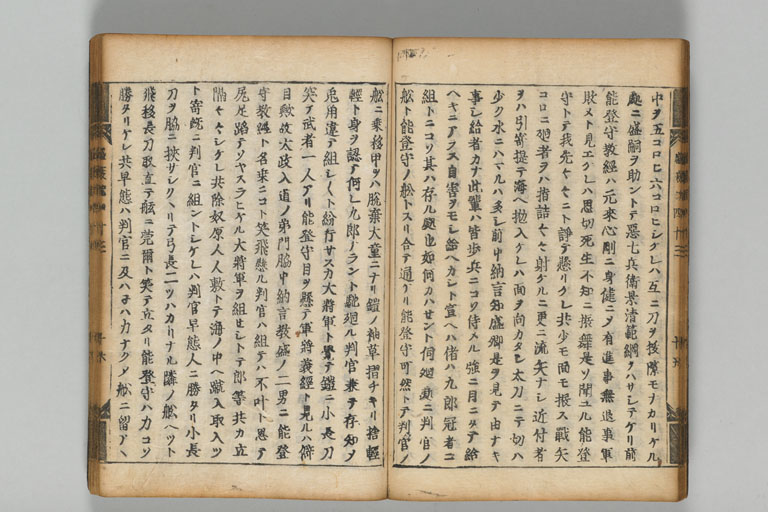 中ヲ五コロヒ六コロヒシケレハ互ニ刀ヲ援隙モナカリケル
処ニ盛嗣ヲ助ントテ悪七兵衛景清範綱ヲハサシテケリ前
能登守教經ハ元来心剛ニ身健ニシテ有進事無退事軍
敗メト見エケレハ思切死生不知ニ振舞是ソ聞ユル能登
守トテ我先ヤヤニト諍テ懸リケレ共少モ面モ振ス戰矢
コロニ廻者ヲハ指詰ヤヤ射ケルニ更ニ流矢ナシ近付者
ヲハ引寄提テ海ヘ抛入ケレハ面ヲ向カタシ太刀ニテ切ハ
少ク水ニハマルハ多シ前中納言知盛卿是ヲ見テ由ナキ
事シ給者カナ此輩ハ皆歩兵ニコソ侍メレ強ニ目ニタテ給
ヘキニアラス自害ヲモシ給ヘカシト宣ヘハ偖ハ九郎冠者ニ
組トニコソ其ハ存ル處也如何カハセント伺廻處ニ判官ノ
舩ト能登守ノ舩トスリ合テ通ケリ能登守可然トテ判官ノ
舩ニ乗移甲ヲハ脱棄大童ニナリ鎧ノ袖草摺チキリ捨輕
輕ト身ヲ認テ何レ九郎ナラント馳廻ル判官兼テ存知ヲ
兎角違テ組シクト紛行サスカ大將軍ト覺テ鎧ニ小長刀
突テ武者一人アリ能登守目ヲ懸テ軍將義經ト見ルハ僻
目歟故太政入道ノ弟門脇中納言教盛ノ二男ニ能登
守教經ト名乗ニコト笑飛懸ル判官ハ組テハ不叶ト思テ
尻足踏テソヤスラヒケル大將軍ヲ組セシトテ郎等共カ立
隔ヤヤシケレ共除奴原人人敷トテ海ノ中ヘ蹴入取入ツ
ト寄既ニ判官ニ組ントシケレハ判官早態人ニ勝タリ小長
刀ヲ脇ニ挾サシクヽリテ弓長二ツハカリナル隣ノ舩ヘツト
飛移長刀取直テ舷ニ莞爾ト笑テ立タリ能登守ハ力コソ
勝タリケレ共早態ハ判官ニ及ハネハ力ナクメ舩ニ留アヽ